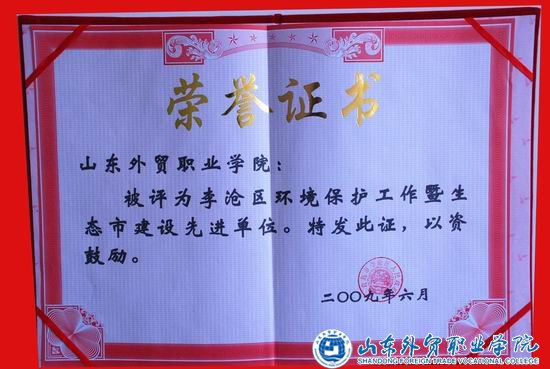 荣誉证书
山东外贸职业学院：
被评为李沧区环境保护工作暨生
态市建设先进单位。特发此证，以资
鼓励。
二〇〇九年六月
山东外贸职业学院
SHANDONG FOREIGN TRADE VOCATIONAL COLLEGE